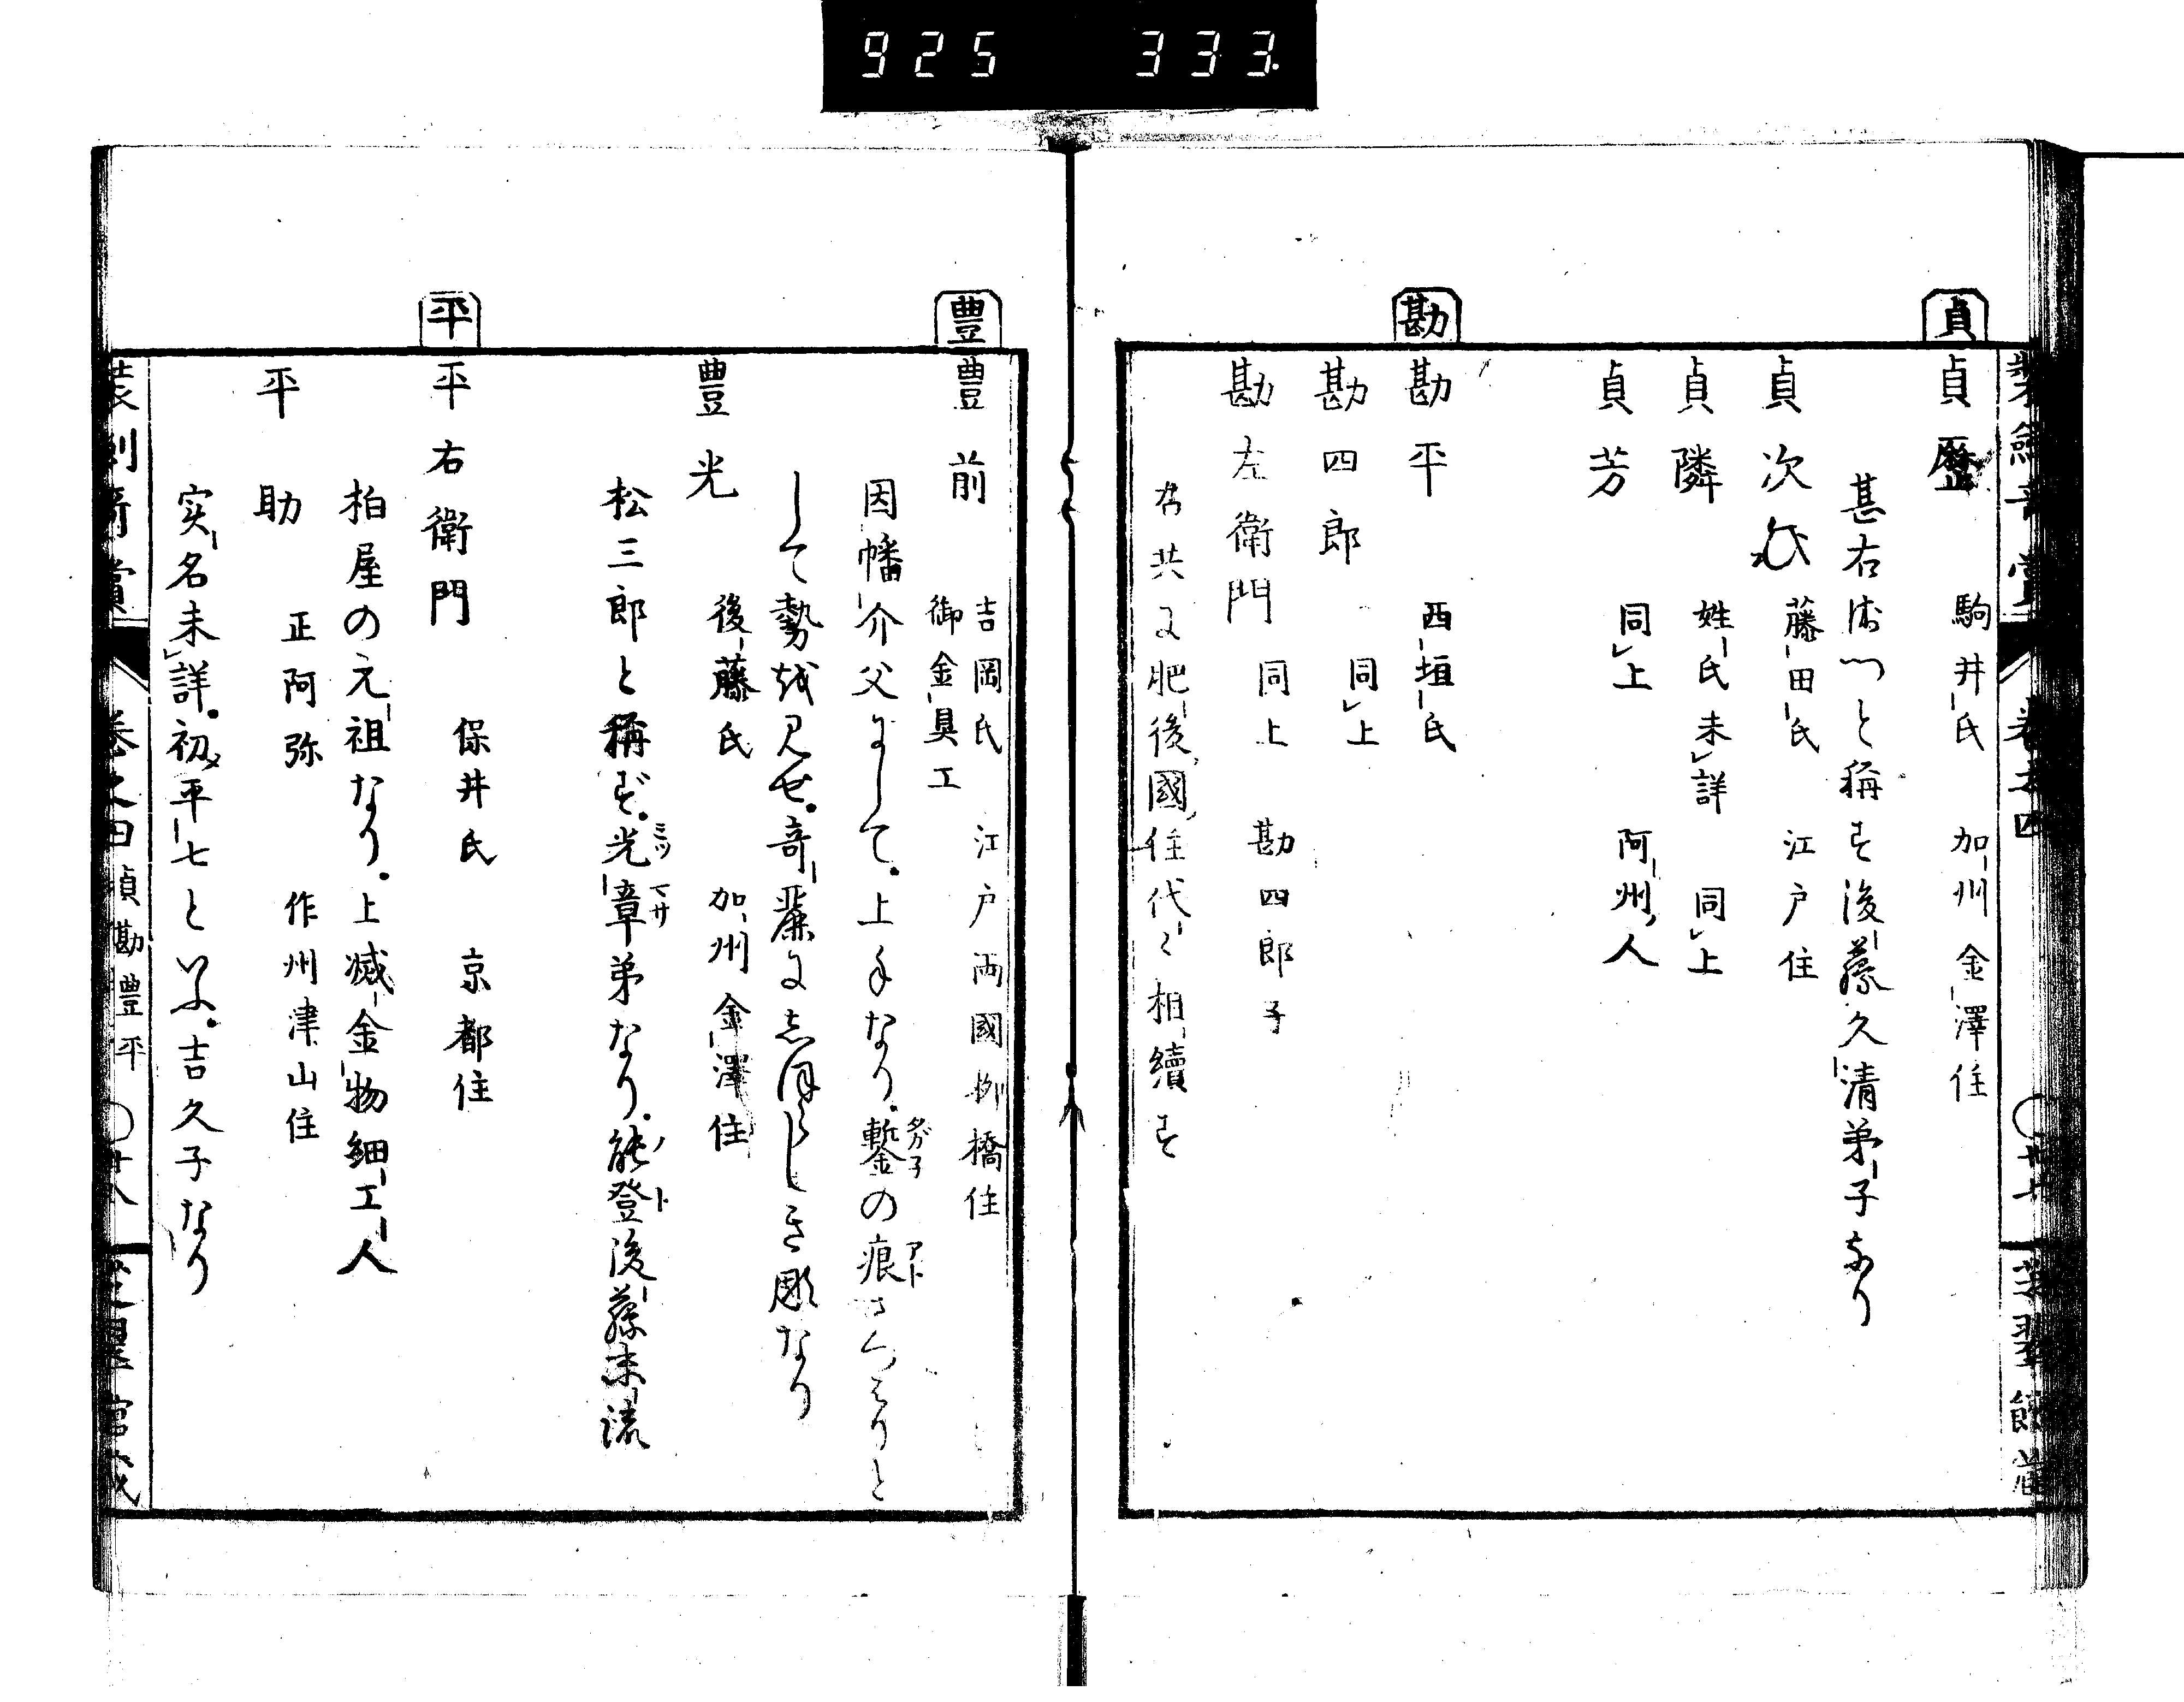 925 333
貞
貞歴 駒井氏 加州金澤住
甚右衛門と称す後藤久清弟子なり
貞次 藤田氏 江戸住
貞隣 姓氏未詳 同上
貞芳 同上 阿州人
勘
勘平 西垣氏
勘四郎 同上
勘左衛門 同上 勘四郎子
右共に肥後國住代々相續す
豊
豊前 吉岡氏 江戸両國柳橋住
御金具工
因幡介父にして。上手なり。鏨の痕さつはりと
して勢を見せ。竒麗にしほらしき彫なり
豊光 後藤氏 加州金澤住
松三郎と稱ず。光章弟なり。能登後藤末流
平
平右衛門 保井氏 京都住
柏屋の元祖なり。上滅金物細工人
平助 正阿弥 作州津山住
実名未詳。初平七といふ。吉久子なり
装劍竒賞 巻之四 貞勘豊平 〇廿八